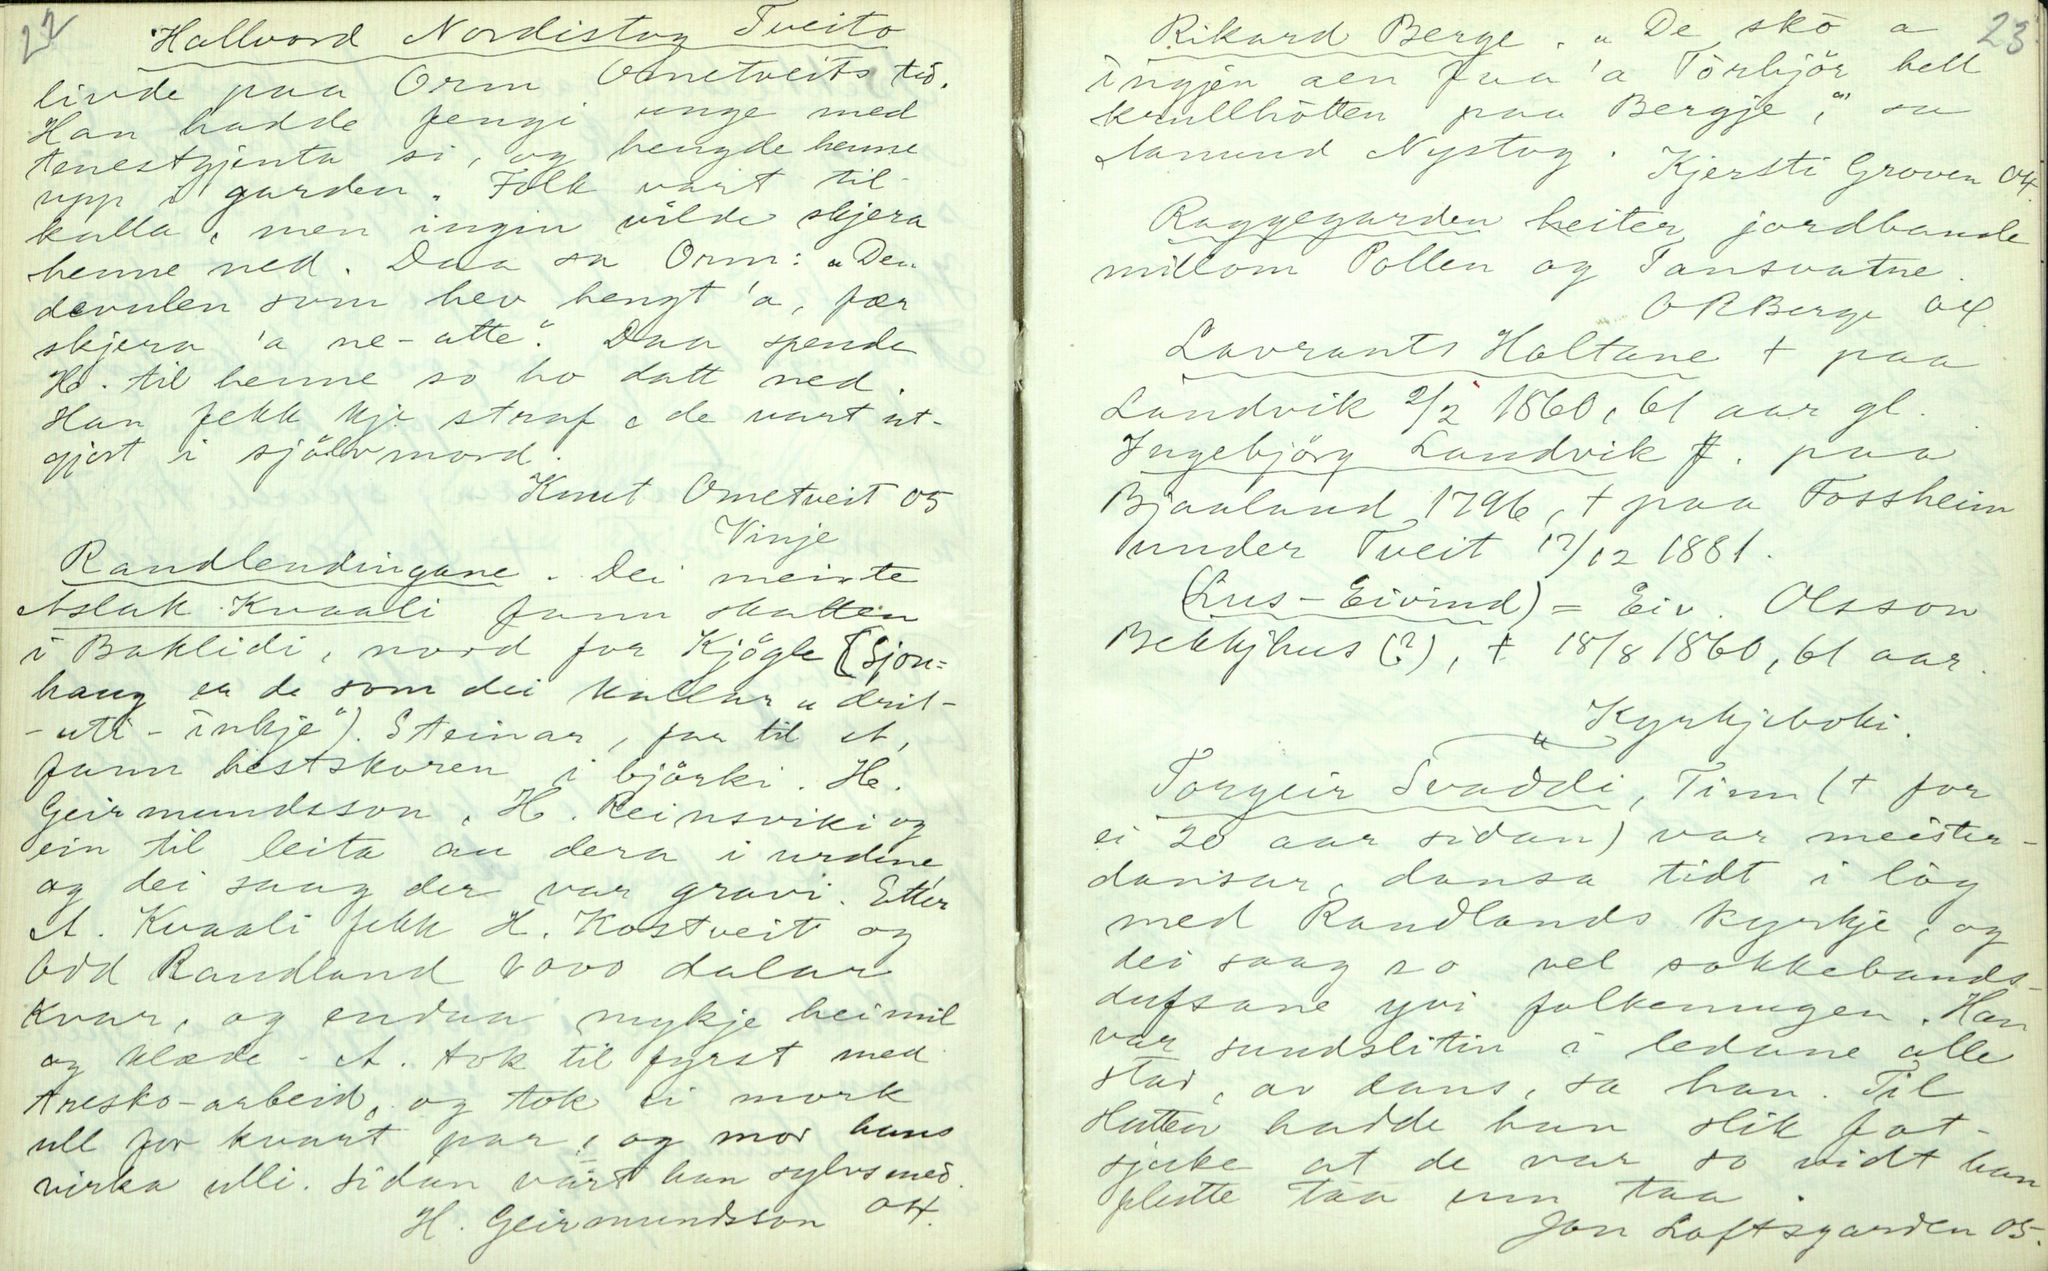 22
Hallvord Nordistog Tveito
livde paa Orm Ometveits tid.
Han hadde fengi unge med
tenestgjenta si, og hengde henne
upp i garden. Folk vart til-
kalla, men ingin vilde skjera
henne ned. Daa sa Orm: „Den
devulen som hev hengt 'a, fær
skjera 'a ne-atte." Daa spende
H. til henne so ho datt ned.
Han fekk kje straf, de vart ut-
gjort i sjölvmord.
Knut Ometveit 05
Vinje
Randlendingane. Dei meinte
Aslak Kvaali fann skatten
i Baklidi, nord for Kjögle (Sjon=
haug er de som dei kallar „drit-
-uti-inkje"). Steinar, far til A,
fann hestskoren i björki. H.
Geirmundsson, H. Reinsviki og
ein til leita au dera i urdine
og dei saag der var gravi. Etter
A. Kvaali fekk H. Kostveit og
Odd Randland 8000 dalar
kvar, og endaa mykje heimil
og klæde - A. tok til fyrst med
tresko-arbeid, og tok ei mork
ull for kvart par, og mor hans
virka ulli. Sidan vart han sylvsmed.
H. Geirmundsson 04.
23
Rikard Berge. „De sko a
ingjen aen faa 'a Törbjör hell
skrullhötten paa Bergje," sa
Aamund Nystog.
Kjersti Groven 04.
Raggegarden heiter jordbande
millom Pollen og Tansvatne.
O R Berge 04.
Lavrants Haltane + paa
Landvik 2/2 1860, 61 aar gl.
Ingebjörg Landvik f. paa
Bjaaland 1796, + paa Fossheim
under Tveit 17/12 1881.
(Lus-Eivind) = Eiv. Olsson
Bekkjhus (?), + 18/8 1860, 61 aar.
„ Kyrkjeboki.
Torgeir Svaddi, Tinn (+ for
ei 20 aar sidan) var meister-
dansar, dansa tidt i lög
med Randlands kyrkje, og
dei saag so vel sokkebands-
dufsane yvi folkemugen. Han
var sundslitin i ledane alle
stad, av dans, sa han. Til
slutten hadde han slik fot-
sjuke at de var so vidt han
flutte taa um taa.
Jon Loftsgarden 05.